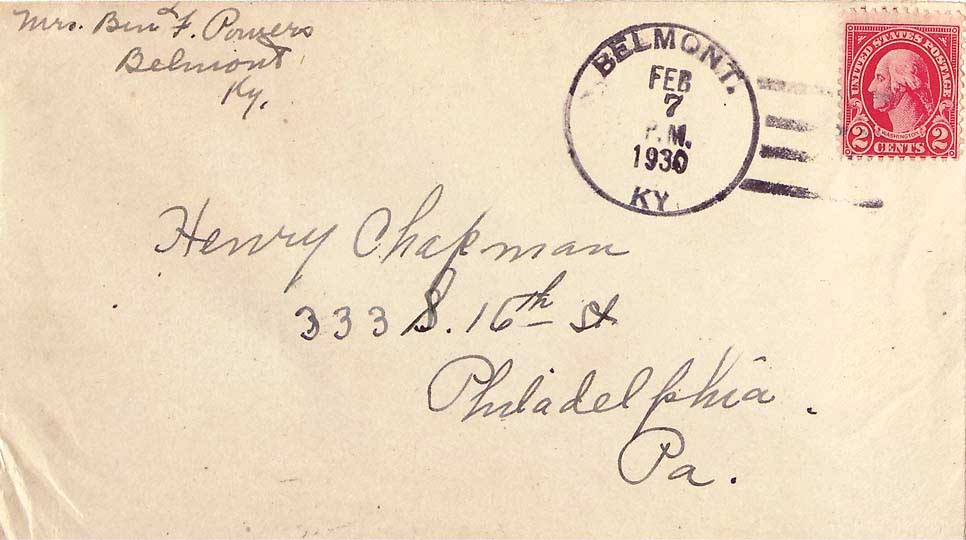 Mrs. Ben F. Powers
Belmont
Ky.
BELMONT.
FEB
7
P.M.
1930
KY.
UNITED STATES POSTAGE
WASHINGTON
2 CENTS 2
Henry Chapman
333 S. 16th St
Philadelphia.
Pa.